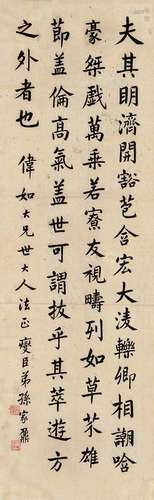 夫其明濟開豁苞含宏大淩轢卿相謿哈
豪桀戲萬乘若寮友視疇列如草芥雄
節盖倫高氣盖世可謂拔乎其萃遊方
之外者也 偉如大兄世大人法正 燮臣弟孫家鼐